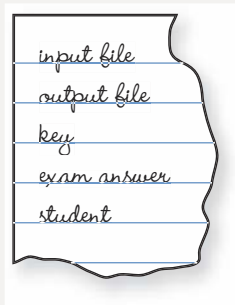 input file
output file
key
exam answer
student